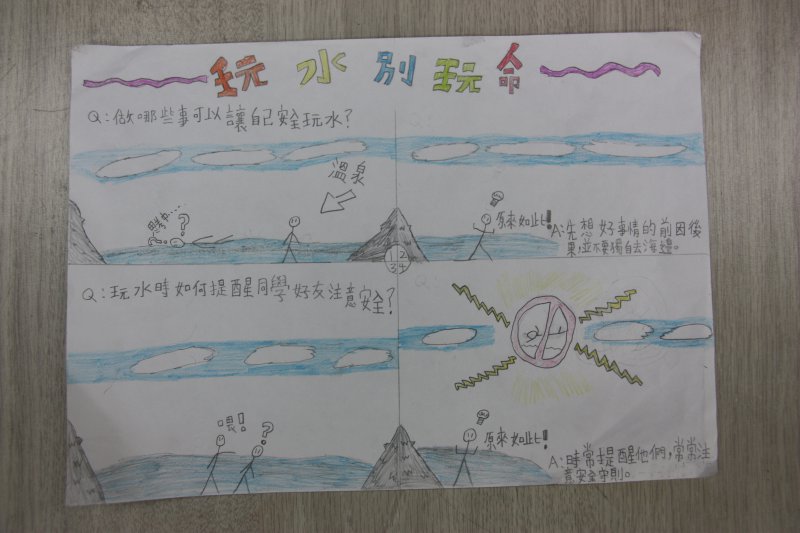 玩水別玩命
Q:做哪些事可以讓自己安全玩水?
溫泉
思考中....
?
?
原來如此!
A:先想好事情的前因後
果,並不要獨自去海邊。
1 2
3 4
Q:玩水時如何提醒同學好友注意安全?
喂!
?
原來如此!
A:時常提醒他們,常常注
意安全守則。